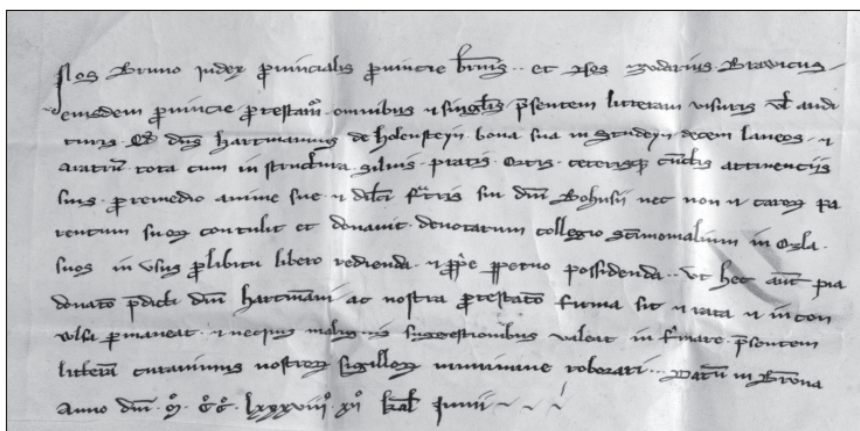 Nos Bruno iudex ꝓuincialis ꝓuincie br̄nn̄s ·· et zudarius Brawicus
eiusdem ꝓuincie ꝓtestam͛ omnibus ⁊ singl̄is p̄sentem litteram visuris vl̄ audi
turis · Qd̄ dn̄s hartmannus de holenstein · bona sua in Studeyn decem laneos · ⁊
aratrū · tota cum in structura siluis · pratis · Ortis · ceterisqꝫ cūctis attinenciis
suis · ꝓ remedio anime sue · ⁊ dil̄ci fr̄is sui dn̄i Bohusii nec non ⁊ caroꝝ pa
rentum suoꝝ contulit et donauit · deuotarum collegio sc̄imonialium in Ozla ·
suos in vsus ꝓ libitu libero redienda · ⁊ ꝑpetuo possidenda ·· vt hec aut̄ pia
donatō p̄dicti dn̄i hartmāni ac nostra ꝓtestatō firma sit ⁊ rata ⁊ in con
wlsa ꝑmaneat · ⁊ nequius malignis suggestionibus valeat in firmare · p̄sentem
litterā curauimus nostroꝝ sigilloꝝ munimine roborari ··· Datū in Brōna
Anno dn̄i · mͦ · ccͦ · lxxxviiiͦ · xiiͦ kal̄ Junii